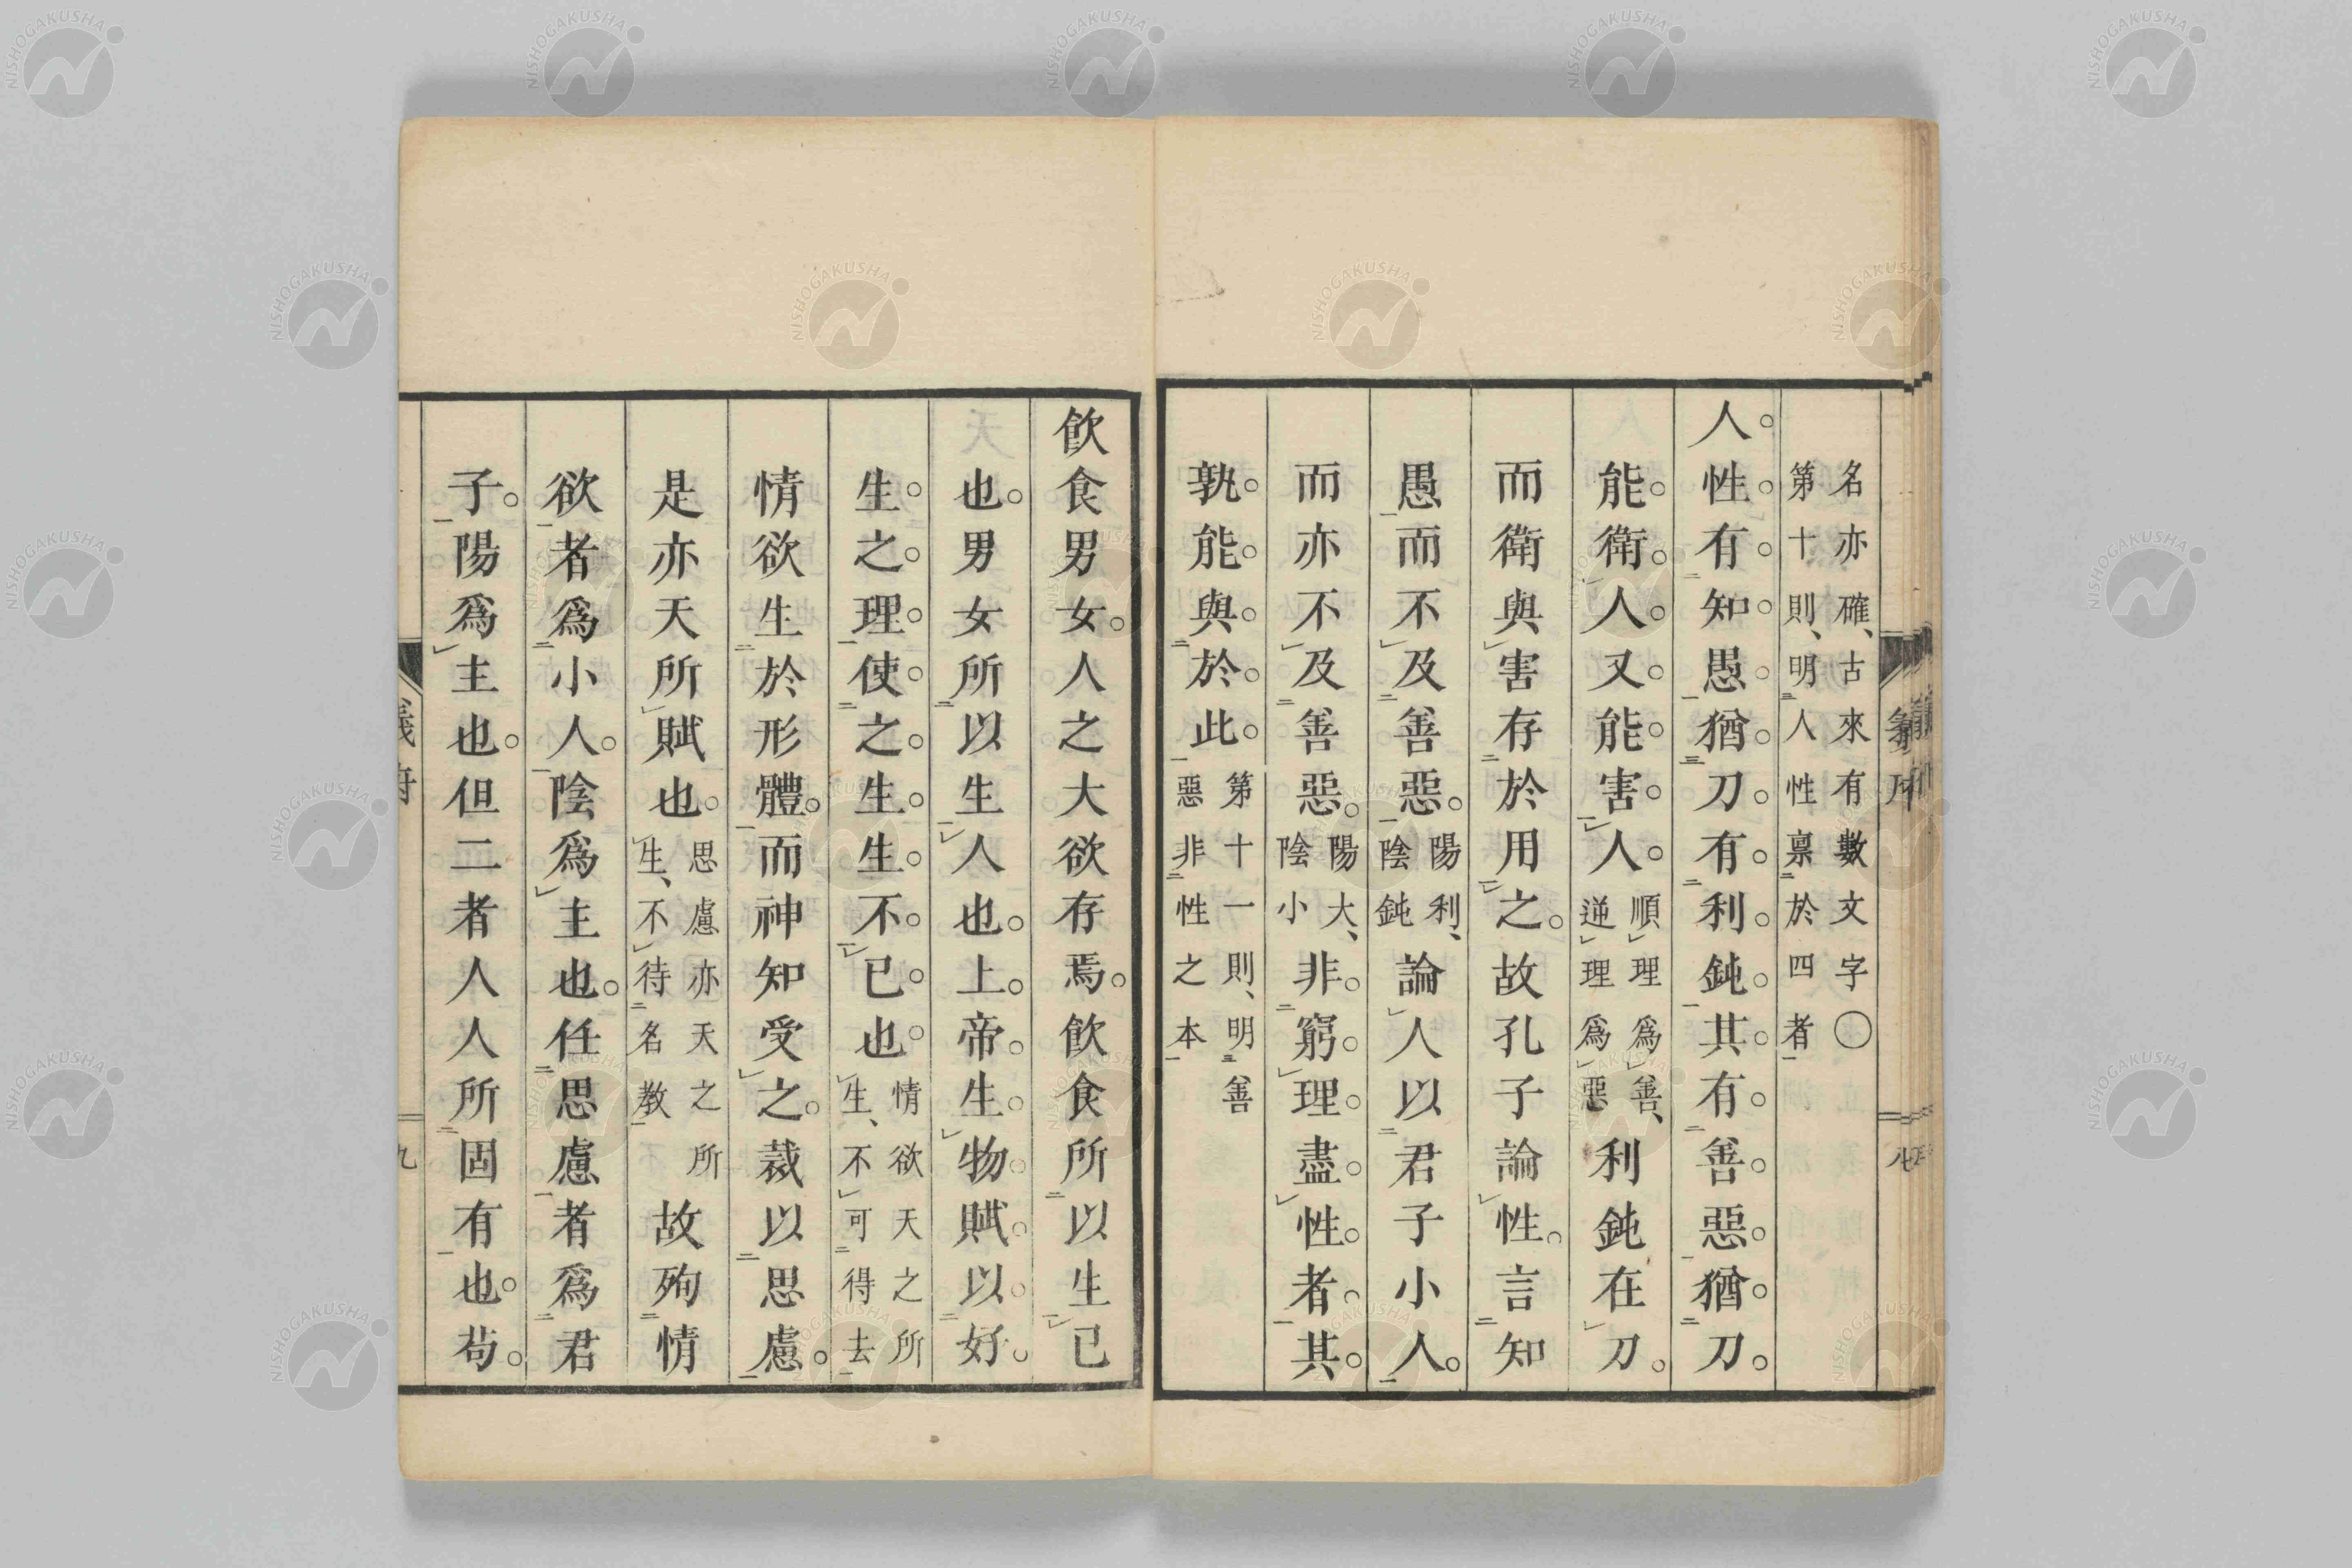 名亦確、古來有數文字〇
第十則、明人性稟於四者
人性有知愚猶刀有利鈍其有善惡猶刀
能衛人又能害人順理爲善、逆理爲惡利鈍在刀
而衛與害存於用之故孔子論性言知
愚而不及善惡陽利、陰鈍論人以君子小人
而亦不及善惡陽大、陰小非窮理盡性者其
孰能與於此第十一則、明善惡非性之本
飲食男女人之大欲存焉飲食所以生已
也男女所以生人也上帝生物賦以好
生之理使之生生不已也情欲天之所生、不可得去
情欲生於形體而神知受之裁以思慮
是亦天所賦也思慮亦天之所生、不待名教故殉情
欲者爲小人陰爲主也任思慮者爲君
子陽爲主也但二者人人所固有也苟
九
NISHOGAKUSHA